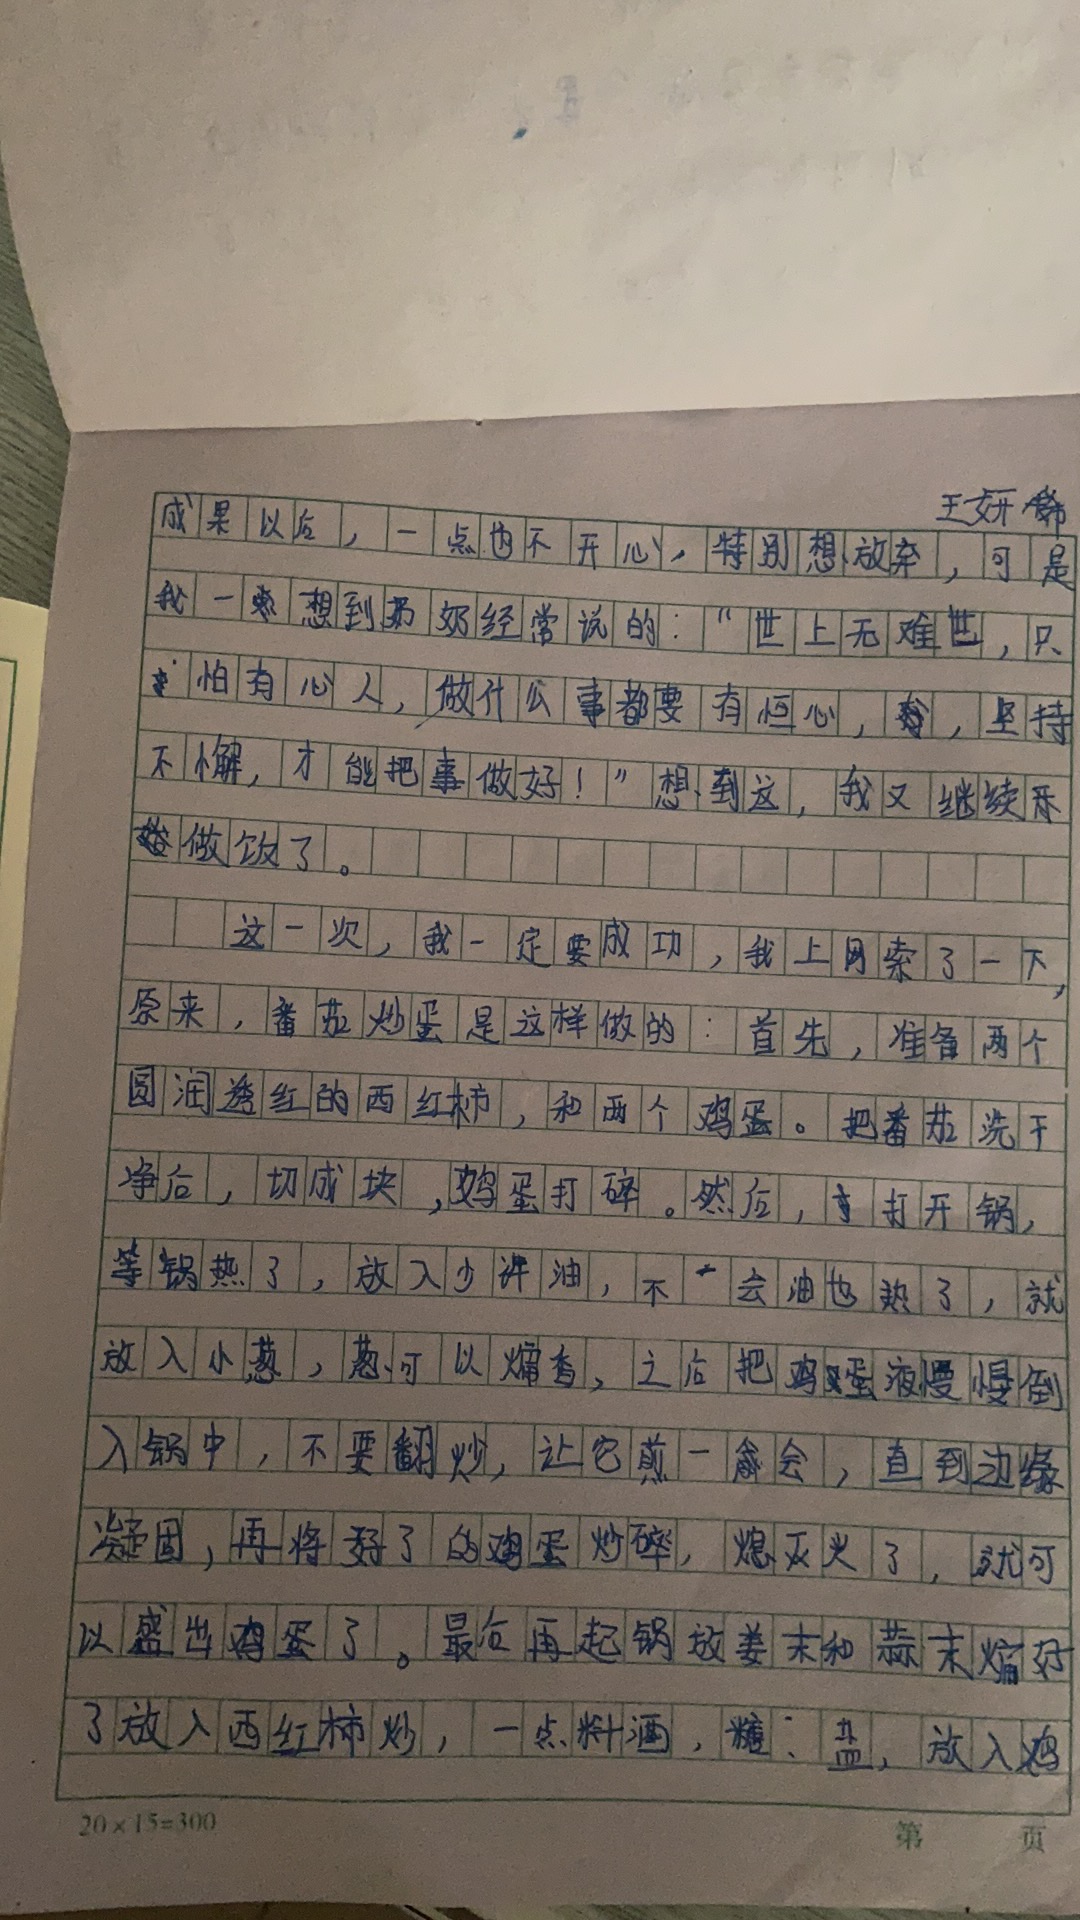 王妍
成果以后，一点也不开心，特别想放弃，可是
我一想到奶奶经常说的：“世上无难世，只
怕有心人，做什公事都要有恒心，坚持
不懈，才能把事做好！”想到这，我又继续开
始做饭了。
这一次，我一定要成功，我上网索了一下，
原来，番茄炒蛋是这样做的：首先，准备两个
圆润透红的西红柿，和两个鸡蛋。把番茄洗干
净后，切成块，鸡蛋打碎。然后，打开锅，
等锅热了，放入少许油，不一会油也热了，就
放入小葱，葱可以煸香，之后把鸡蛋液慢慢倒
入锅中，不要翻炒，让它煎一会，直到边缘
凝固，再将好了的鸡蛋炒碎，熄灭火了，就可
以盛出鸡蛋了。最后再起锅放姜末和蒜末煸好
了放入西红柿炒，一点料酒，糖：盐，放入鸡
20×15=300
第 页